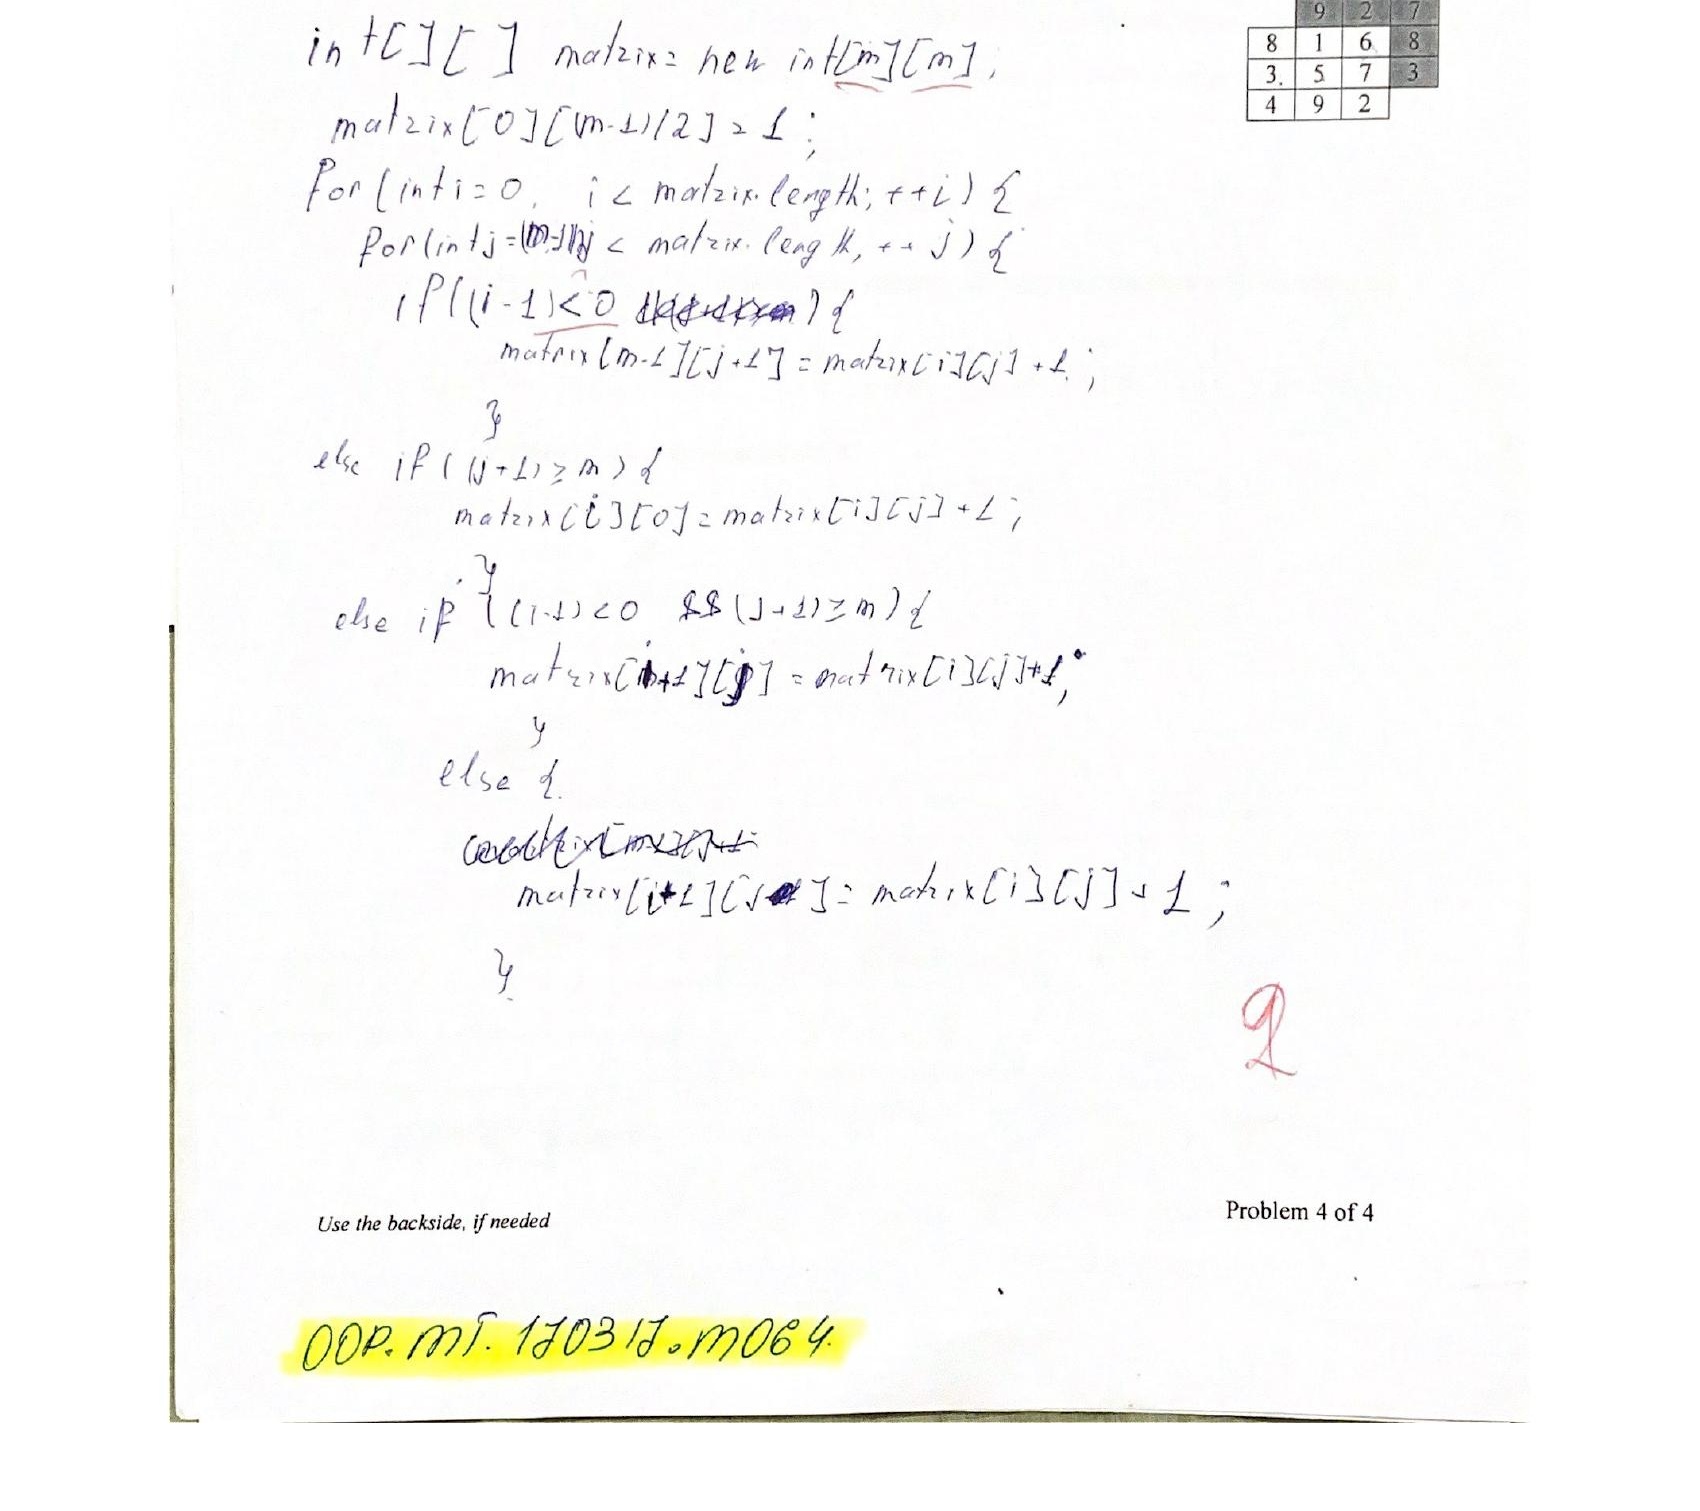 9 2 7
8 1 6 8
3. 5 7 3
4 9 2
int[][] matrix= new int[m][m];
matrix[0][(m-1)/2] = 1;
for(int i=0, i< matrix.length; ++i) {
for(int j= j < matrix.length, ++j) {
if((i-1)<0 ) {
matrix[m-1][j+1] = matrix[i][j]+1;
}
else if ((j+1)≥m) {
matrix[i][0]=matrix[i][j]+1;
}
else if ((i-1)<0 && (j+1)≥m) {
matrix[i+1][j] = matrix[i][j]+1;
}
else {
matrix[i+1][j ]= matrix[i][j]+1;
}
2
Use the backside, if needed
Problem 4 of 4
OOP.MT.170317.M064